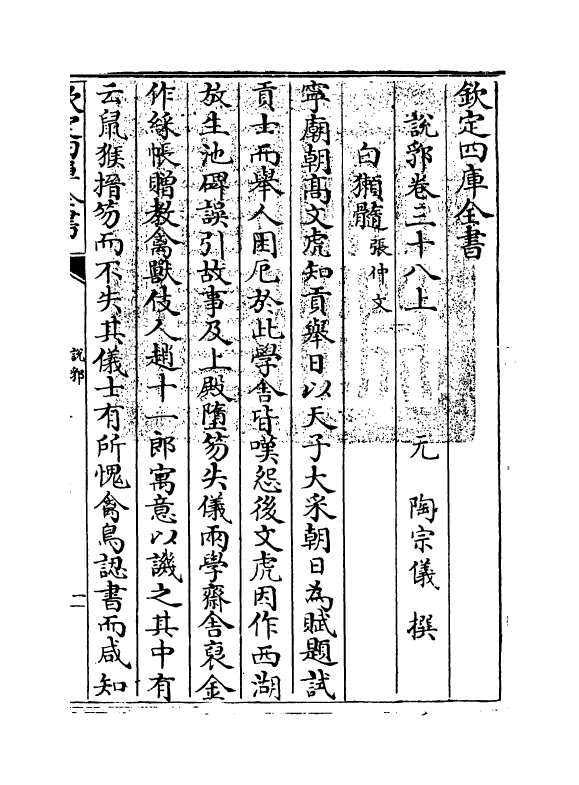 欽定四庫全書
說郛卷三十八上　元　陶宗儀　撰
白獺髓張仲文
寧廟朝髙文虎知貢舉日以天子大采朝日為賦題試
貢士而舉人困厄於此學舍皆嘆怨後文虎因作西湖
放生池碑誤引故事及上殿墮笏失儀兩學齋舍裒金
作緣帳贈教禽獸伎人趙十一郎寓意以譏之其中有
云鼠猴搢笏而不失其儀士有所愧禽鳥認書而咸知
欽定四庫全書
說郛